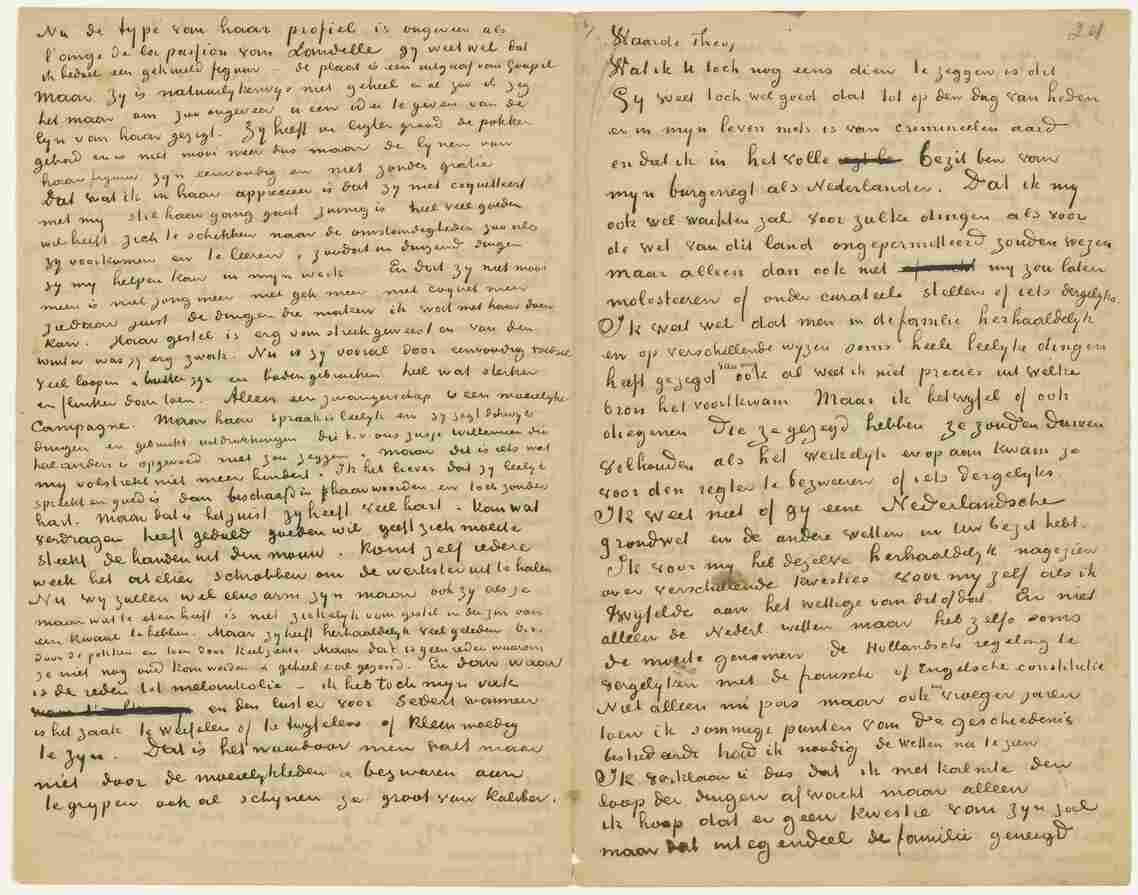 Nu de type van haar profiel is ongeveer als
l'ange de la passion van Landelle gy weet wel dat
ik bedoel een geknield figuur – de plaat is een uitgaaf van Goupil
Maar zy is natuurlykerwys niet geheel en al zoo ik zeg
het maar om zoo ongeveer u een idee te geven van de
lyn van haar gezigt. Zy heeft in ligten graad de pokken
gehad en is niet mooi meer dus maar de lynen van
haar figuur zyn eenvoudig en niet zonder gratie
Dat wat ik in haar apprecieer is dat zy niet coquetteert
met my stil haar gang gaat zuinig is heel veel goeden
wil heeft zich te schikken naar de omstandigheden zooals
zy voorkomen en te leeren, zoodat in duizend dingen
zy my helpen kan in myn werk En dat zy niet mooi
meer is niet jong meer niet gek meer niet coquet meer
ziedaar juist de dingen die maken ik wat met haar doen
kan. Haar gestel is erg van streek geweest en van den
winter was zy erg zwak. Nu is zy vooral door eenvoudig voedsel
veel loopen buiten zyn en baden gebruiken heel wat sterker
en flinker dan toen. Alleen een zwangerschap is een moeielyke
Campagne. Maar haar spraak is leelyk en zy zegt dikwyls
dingen en gebruikt uitdrukkingen die b.v. ons zusje Willemien die
heel anders is opgevoed niet zou zeggen, maar dit is iets wat
my volstrekt niet meer hindert. Ik heb liever dat zy leelyk
spreekt en goed is dan beschaafd in haar woorden en toch zonder
hart. Maar dat is het juist zy heeft veel hart. Kan wat
verdragen heeft geduld goeden wil geeft zich moeite
steekt de handen uit den mouw. Komt zelf iedere
week het atelier schrobben om de werkster uit te halen
Nu wy zullen wel eens arm zyn maar ook zy als ze
maar wat te eten heeft is niet ziekelyk van gestel in den zin van
een kwaal te hebben. Maar zy heeft herhaaldelyk veel geleden b.v.
door de pokken en toen door keelziekte Maar dat is geen reden waarom
ze niet nog oud kan worden & geheel en al gezond. En dan waar
is de reden tot melankolie – ik heb toch myn vak
en den luster voor Sedert wanneer
is het zaak te weifelen of te twyfelen of kleinmoedig
te zyn. Dat is het waardoor men valt maar
niet door de moeielykheden & bezwaren aan
te grypen ook al schynen ze groot van kaliber.
204
Waarde Theo,
Wat ik U toch nog eens dien te zeggen is dit
Gy weet toch wel goed dat tot op den dag van heden
er in myn leven niets is van crimineelen aard
en dat ik in het volle bezit ben van
myn burgerregt als Nederlander. Dat ik my
ook wel wachten zal voor zulke dingen als voor
de wet van dit land ongepermitteerd zouden wezen
maar alleen dan ook niet my zou laten
molesteeren of onder curateele stellen of iets dergelyks.
Ik weet wel dat men in de familie herhaaldelyk
en op verschillende wyzen soms heele leelyke dingen
heeft gezegd van my ook al weet ik niet precies uit welke
bron het voortkwam Maar ik betwyfel of ook
diegenen die ze gezegd hebben ze zouden durven
volhouden als het werkelyk er op aan kwam ze
voor den regter te bezweeren of iets dergelyks
Ik weet niet of gy eene Nederlandsche
grondwet en de andere wetten in Uw bezit hebt.
Ik voor my heb dezelve herhaaldelyk nagezien
over verschillende kwesties voor my zelf als ik
twyfelde aan het wettige van dit of dat. En niet
alleen de Nederl. wetten maar heb zelfs soms
de moeite genomen de Hollandsche regeling te
vergelyken met de fransche of Engelsche constitutie
Niet alleen nu pas maar ook in vroeger jaren
toen ik sommige punten van de geschiedenis
bestudeerde had ik noodig de wetten na te zien
Ik verklaar u dus dat ik met kalmte den
loop der dingen afwacht maar alleen
ik hoop dat er geen kwestie van zyn zal
maar dat integendeel de familie geneigd